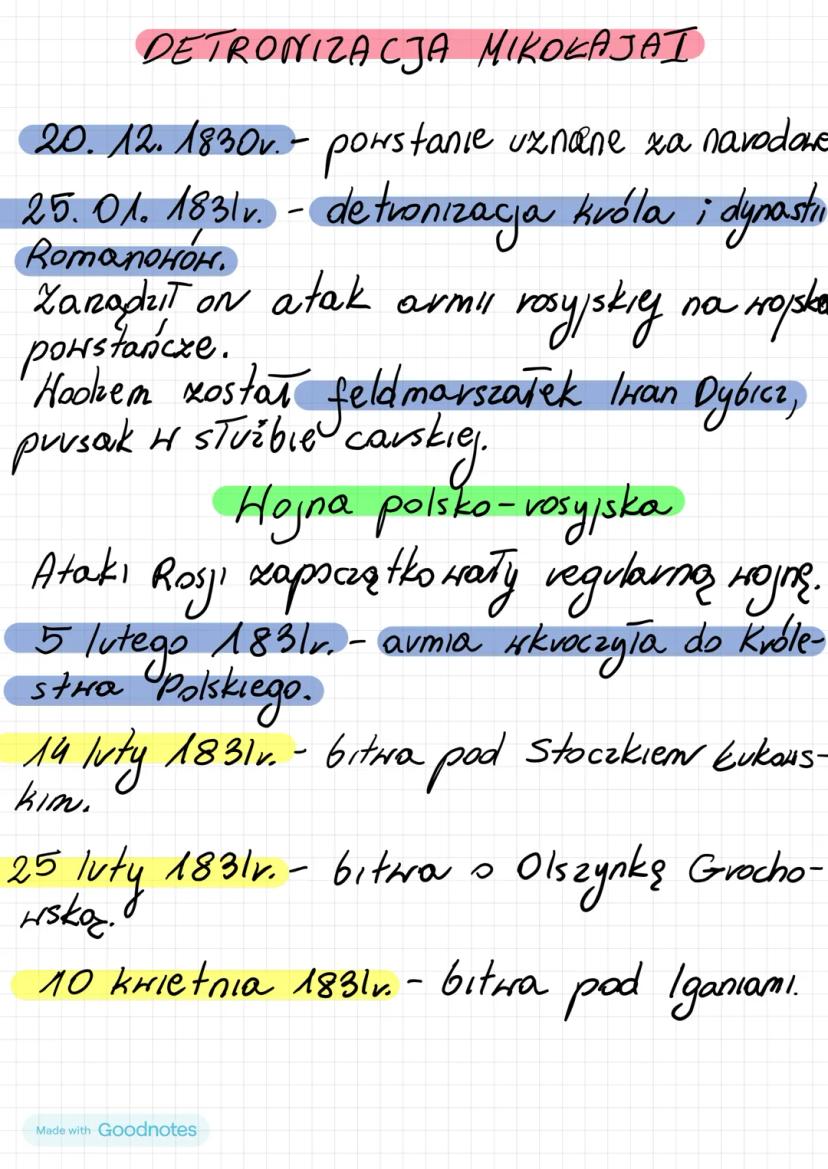 DETRONIZACJA MIKOŁAJA I
20. 12. 1830r. - powstanie uznane za narodowe
25. 01. 1831r. - detronizacja króla i dynastii
Romanowów.
Zarządził on atak armii rosyjskiej na wojska
powstańcze.
Wodzem został feldmarszałek Iwan Dybicz,
prusak w służbie carskiej.
Wojna polsko-rosyjska
Ataki Rosji zapoczątkowały regularną wojnę.
5 lutego 1831r. - armia wkroczyła do Króle-
stwa Polskiego.
14 luty 1831r. - bitwa pod Stoczkiem Łukows-
kim.
25 luty 1831r. - bitwa o Olszynkę Grocho-
wską.
10 kwietnia 1831r. - bitwa pod Iganiami.
Made with Goodnotes